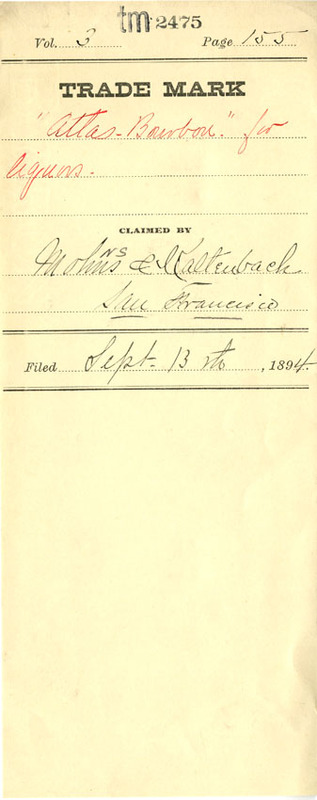 tm 2475
Vol. 3 Page 155
TRADE MARK
"Atlas-Bourbon." for
liquors.
CLAIMED BY
Mohns & Kaltenbach
San Francisco
Filed Sept. 13th, 1894.